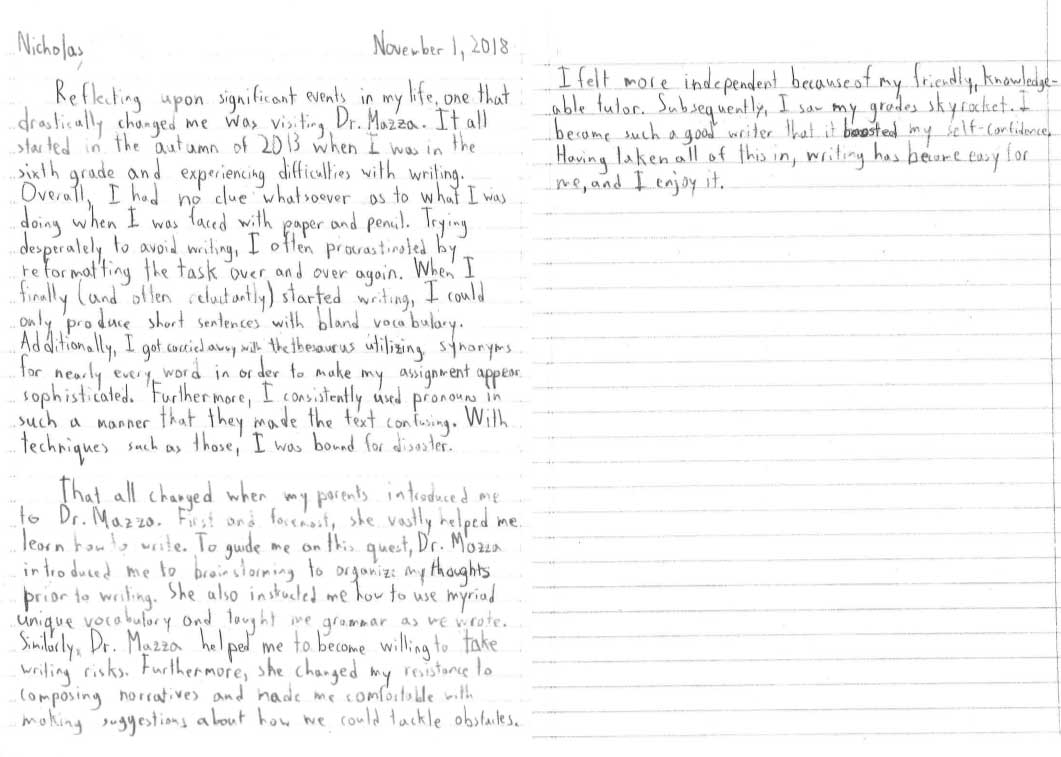 Nicholas
November 1, 2018
Reflecting upon significant events in my life, one that
drastically changed me was visiting Dr. Mazza. It all
started in the autumn of 2013 when I was in the
sixth grade and experiencing difficulties with writing.
Overall, I had no clue whatsoever as to what I was
doing when I was faced with paper and pencil. Trying
desperately to avoid writing, I often procrastinated by
reformatting the task over and over again. When I
finally (and often reluctantly) started writing, I could
only produce short sentences with bland vocabulary.
Additionally, I got carried away with the thesaurus utilizing synonyms
for nearly every word in order to make my assignment appear
sophisticated. Furthermore, I consistently used pronouns in
such a manner that they made the text confusing. With
techniques such as those, I was bound for disaster.
That all changed when my parents introduced me
to Dr. Mazza. First and foremost, she vastly helped me
learn how to write. To guide me on this quest, Dr. Mazza
introduced me to brainstorming to organize my thoughts
prior to writing. She also instructed me how to use myriad
unique vocabulary and taught me grammar as we wrote.
Similarly, Dr. Mazza helped me to become willing to take
writing risks. Furthermore, she changed my resistance to
composing narratives and made me comfortable with
making suggestions about how we could tackle obstacles.
I felt more independent because of my friendly, knowledge-
able tutor. Subsequently, I saw my grades skyrocket. I
became such a good writer that it boosted my self-confidence.
Having taken all of this in, writing has become easy for
me, and I enjoy it.